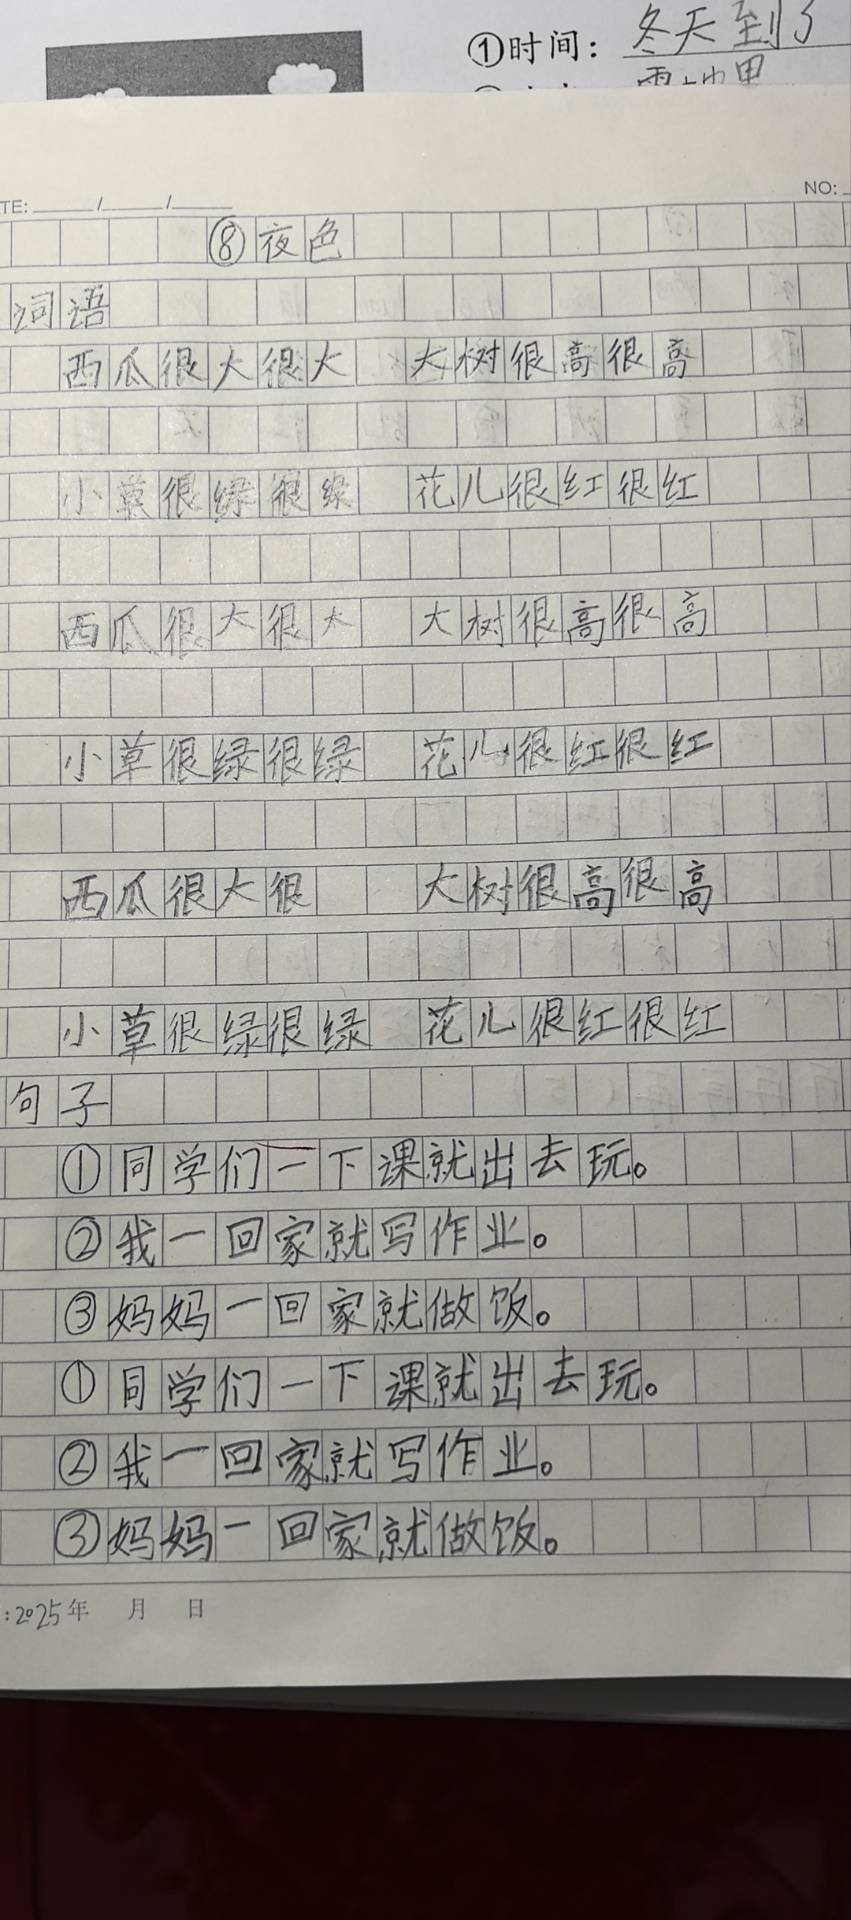 ①时间：冬天到了
TE: / /
NO:
⑧夜色
词语
西瓜很大很大 大树很高很高
小草很绿很绿 花儿很红很红
西瓜很大很大 大树很高很高
小草很绿很绿 花儿很红很红
西瓜很大很 大树很高很高
小草很绿很绿 花儿很红很红
句子
①同学们一下课就出去玩。
②我一回家就写作业。
③妈妈一回家就做饭。
①同学们一下课就出去玩。
②我一回家就写作业。
③妈妈一回家就做饭。
:2025年 月 日